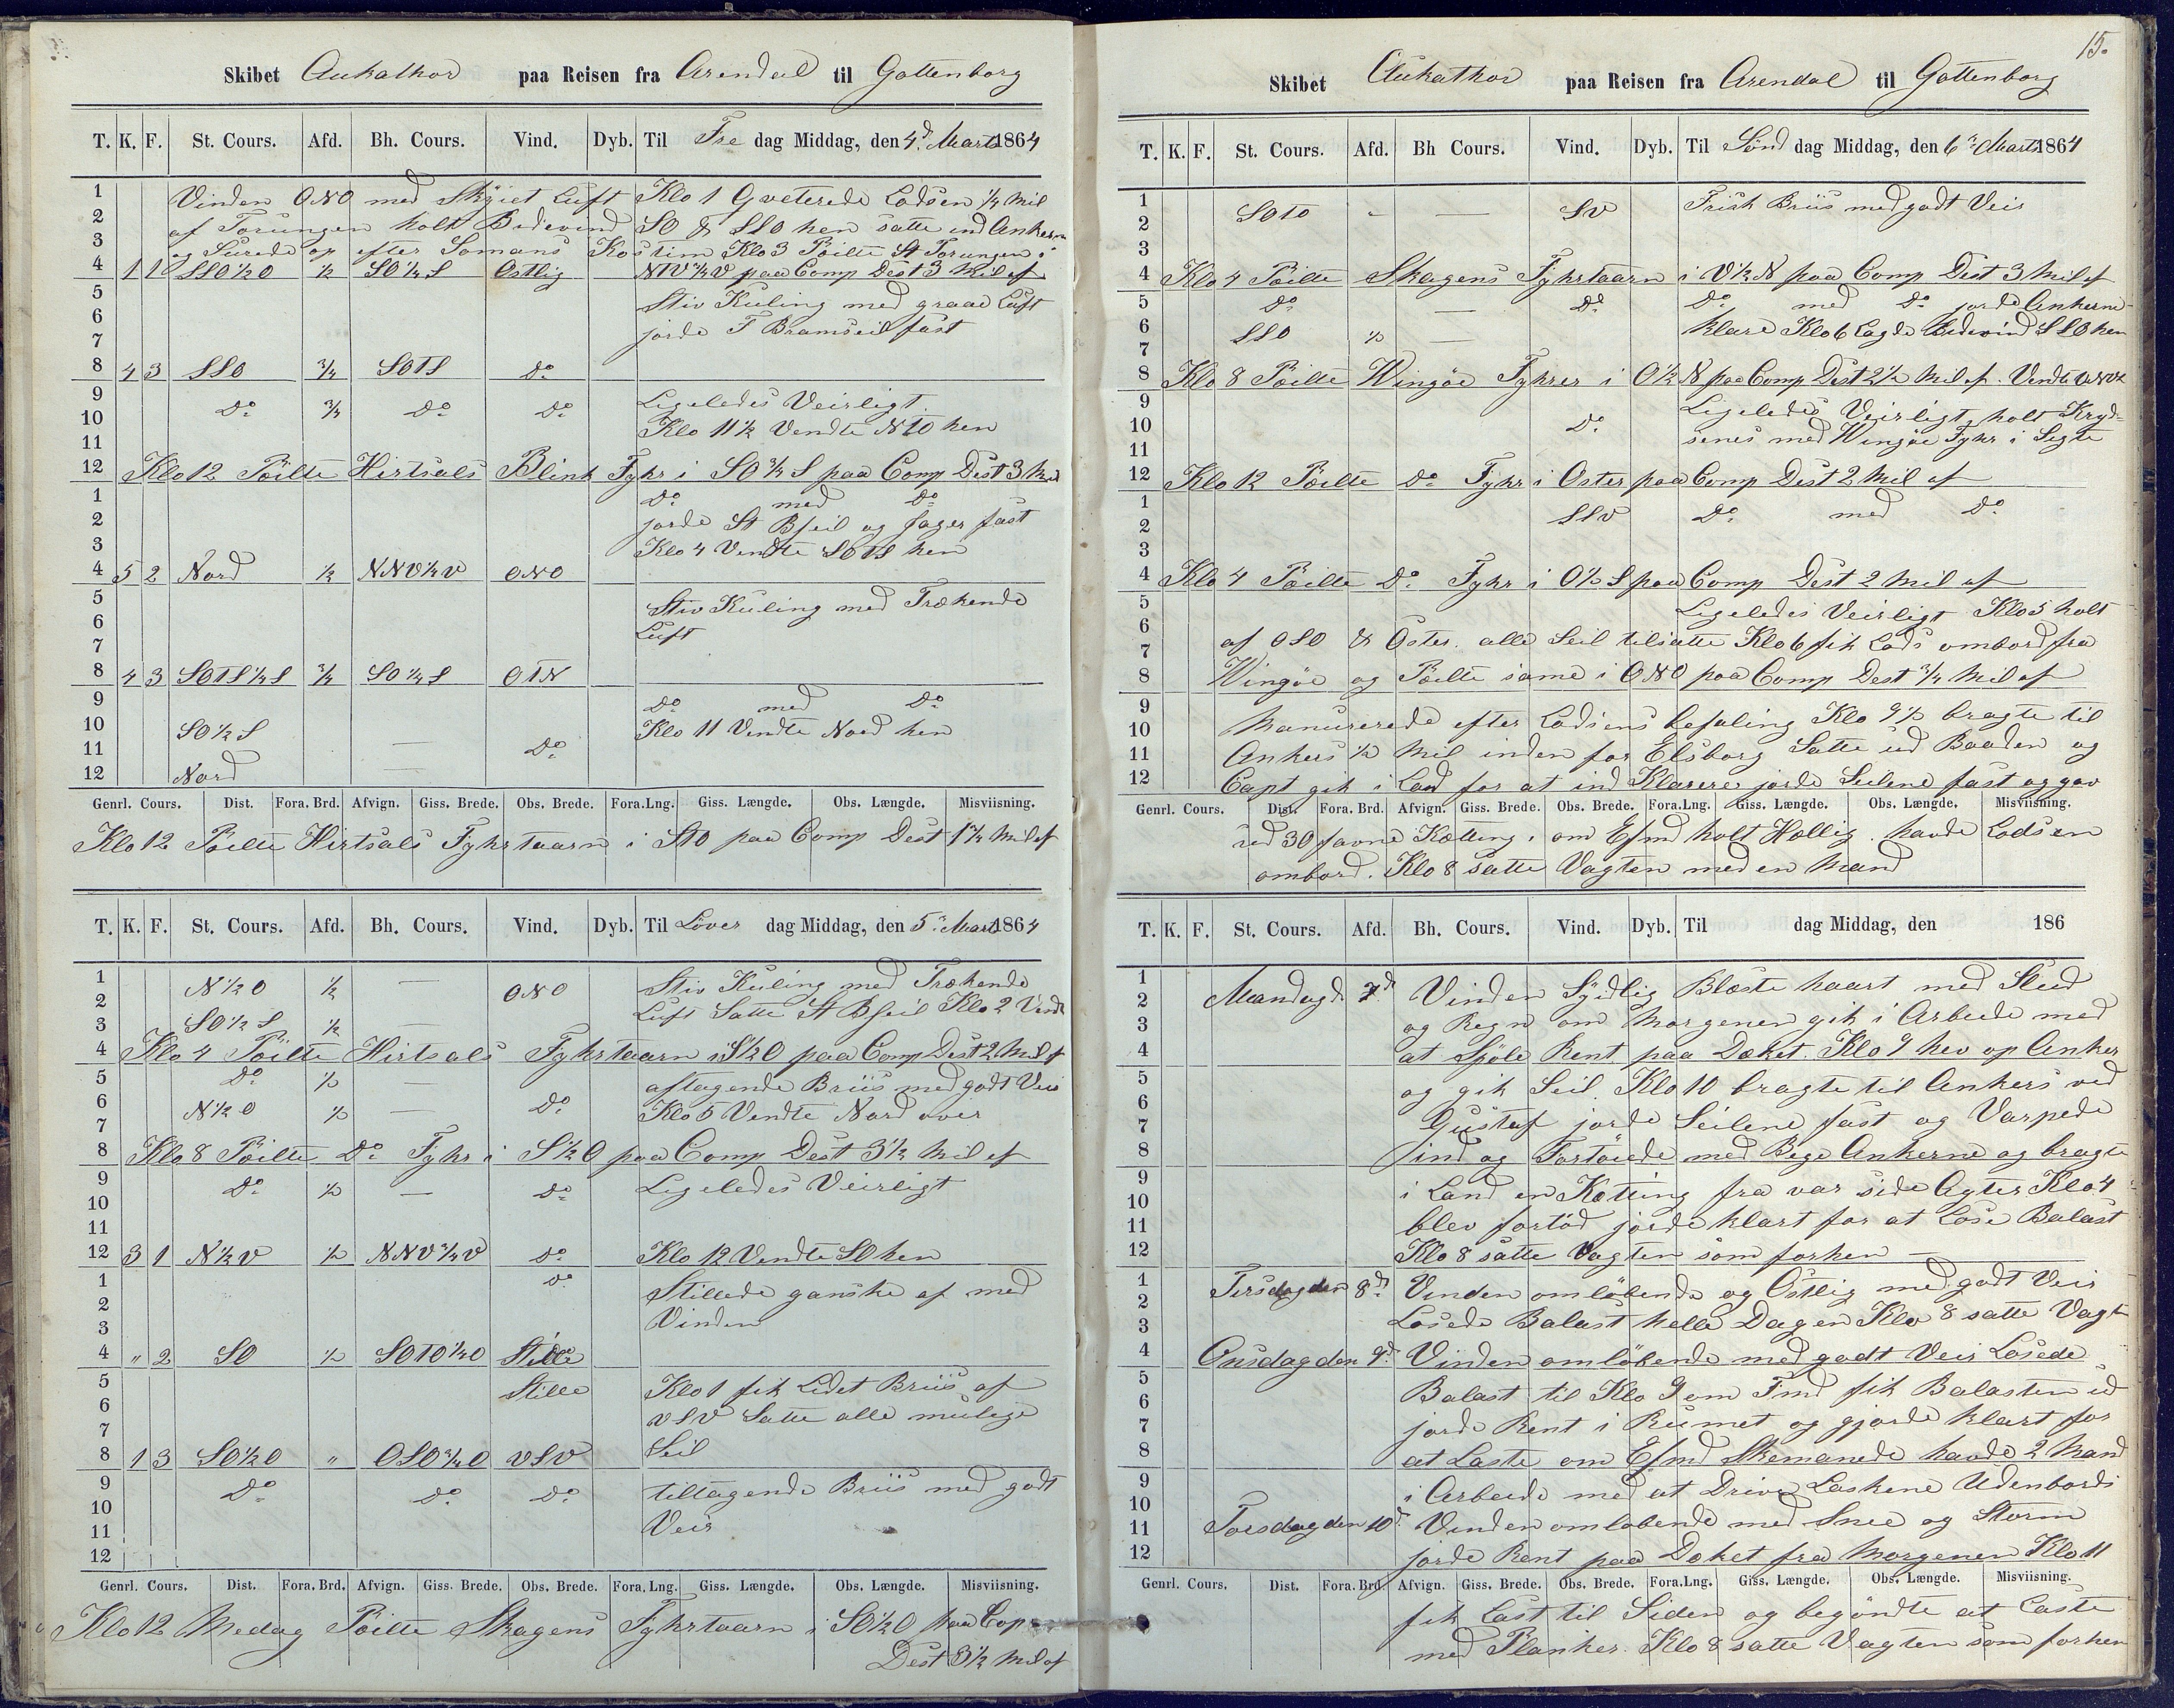 Skibet Aukathor paa Reisen fra Arendal til Gottenborg
T. K. F. St. Cours. Afd. Bh. Cours. Vind. Dyb. Til Fre dag Middag, den 4d Marts 1864
1 Vinden ONO med Skyiet Luft Klo 1 Qveterede Lodsen 1/4 Mil
2 af Torungen holt Bidevind SO & SSO hen satte ind Ankern
3 og Surede op efter Somans Kostim Klo 3 Pöilte St Torungen i
4 1 1 SSO 1/2 O 1/2 SO 1/4 S Ostlig NTV 1/4 V paa Comp Dest 3 Mil af
5 Stiv Kuling med graae Luft
6
7 jorde F Bramseil fast
8 4 3 SSO 3/4 SOTS Do
9 Do 3/4 Do Do Ligeledes Veirligt
10 Klo 11 1/2 Vendte NTO hen
11
12 Klo 12 Pöilte Hirtsals Blink Fyhr i SO 3/4 S paa Comp Dest 3 Mil
1 Do med Do
2 jorde St Bseil og Jager fast
3 Klo 4 Vendte SOTS hen
4 5 2 Nord 1/2 NNV 1/4 V ONO
5 Stiv Kuling med Trækende
6 Luft
7
8 4 3 SOTS 1/4 S 3/4 SO 1/4 S OTN
9 Do med Do
10 SO 1/2 S — Do Klo 11 Vendte Nord hen
11
12 Nord —
Genrl. Cours. Dist. Fora. Brd. Afvign. Giss. Brede. Obs. Brede. Fora.Lng. Giss. Længde. Obs. Længde. Misviisning.
Klo 12 Pöilte Hirtsals Fyhrtaarn i STO paa Comp Dest 1 1/4 Mil af
T. K. F. St. Cours. Afd. Bh. Cours. Vind. Dyb. Til Löver dag Middag, den 5d Marts 1864
1 N 1/2 O 1/2 — ONO Stiv Kuling med Trækende
2 Luft Satte St Bseil Klo 2 Vendt
3 SO 1/2 S 1/2 —
4 Klo 4 Pöilte Hirtsals Fyhrtaarn i S 1/2 O paa Comp Dest 2 Mil af
5 Do 1/2 — aftagende Briis med godt Veir
6 N 1/2 O 1/2 — Do Klo 5 Vendte Nord over
7
8 Klo 8 Pöilte Do Fyhr i S 1/2 O paa Comp Dest 3 1/2 Mil af
9 Do 1/2 — Do Ligeledes Veirligt
10
11
12 3 1 N 1/2 V 1/2 NNV 3/4 V Do Klo 12 Vendte SO hen
1 Do Stillede ganske af med
2 Vinden
3
4 " 2 SO 1/2 SOTO 1/4 O Stille
5 Stille Klo 1 fik Lidet Briis af
6 VSV Satte alle mulige
7
8 1 3 SO 1/2 O " OSO 3/4 O VSV Seil
9 Do Do Do tiltagende Briis med godt
10
11 Veir
12
Genrl. Cours. Dist. Fora. Brd. Afvign. Giss. Brede. Obs. Brede. Fora. Lng. Giss. Længde. Obs. Længde. Misviisning.
Klo 12 Medag Pöilte Skagens Fyhrtaarn i SO 1/2 O paa Cop
Dest 3 1/2 Mil af
15.
Skibet Aukathor paa Reisen fra Arendal til Gottenborg
T. K. F. St. Cours. Afd. Bh Cours. Vind. Dyb. Til Sönd dag Middag, den 6d Marts 1864
1 SOTO " — SV Frisk Briis med godt Veir
2
3
4 Klo 4 Pöilte Skagens Fyhrtaarn i V 1/2 N paa Comp Dest 3 Mil af
5 Do — Do Do med Do jorde Ankerne
6 SSO 1/2 — klare Klo 6 Lagde Bidevind SSO hen
7
8 Klo 8 Pöilte Wingöe Fyhrer i O 1/2 N paa Comp Dest 2 1/2 Mil af. Vendte
9 Ligeledes Veirligt holt Kryd-
10 Do senes med Wingöe Fyhr i Sigte
11
12 Klo 12 Pöilte Do Fyhr i Oster paa Comp Dest 2 Mil af
1 SSV Do med Do
2
3
4 Klo 4 Pöilte Do Fyhr i O 1/2 S paa Comp Dest 2 Mil af
5 Ligeledes Veirligt Klo 5 holt
6
7 af OSO & Oster. alle Seil tilsatte Klo 6 fik Lods ombord fra
8 Wingöe og Pöilte same i ONO paa Comp Dest 3/4 Mil af
9
10 Manurerede efter Lodsens befaling Klo 9 1/2 bragte til
11 Ankers 1/2 Mil inden for Elsborg Satte ud Baaden og
12 Capt gik i Land for at ind Klarere jorde Seilene fast og gav
Genrl. Cours. Dist. Fora. Brd. Afvign. Giss. Brede. Obs. Brede. Fora.Lng. Giss. Længde. Obs. Længde. Misviisning.
ud 30 favne Kætting. om Efmd holt Hællig. havde Lodsen
ombord. Klo 8 satte Vagten med en Mand
T. K. F. St. Cours. Afd. Bh. Cours. Vind. Dyb. Til dag Middag, den 186
1
2 Mandag d. 7d Vinden Sydlig Blæste haart med Slud
3 og Regn om Morgenen gik i Arbeide med
4 at Spöle Rent paa Dæket. Klo 9 hev op Anker
5 og gik Seil. Klo 10 bragte til Ankers ved
6
7 Gustaf jorde Seilene fast og Varpede
8 ind og Fortöiede med Bege Ankerne og bragte
9 i Land en Kætting fra var side Agter Klo 4
10
11 blev fortöd jorde klart for at Lose Balast
12 Klo 8 satte Vagten som forhen —
1 Tirsdag den 8d Vinden omlöbende og Östlig med godt Veir
2
3 Losede Balast helle Dagen Klo 8 satte Vagt
4 Onsdag den 9d Vinden omlöbende med godt Veir Losede
5
6 Balast til Klo 9 om Fmd fik Balasten ud
7 jorde Rent i Rumet og gjorde klart for
8 at Laste om Efmd Skemanede havde 2 Mand
9
10 i Arbeide med at Drive Laskene Udenbords
11 Torsdag den 10d Vinden omlobende med Snee og Storm
12 jorde Rent paa Doket fra Morgenen Klo 11
Genrl. Cours. Dist. Fora. Brd. Afvign. Giss. Brede. Obs. Brede. Fora.Lng. Giss. Længde. Obs. Længde. Misviisning.
fik Last til Siden og begöndte at Laste
med Planker. Klo 8 satte Vagten som forhen